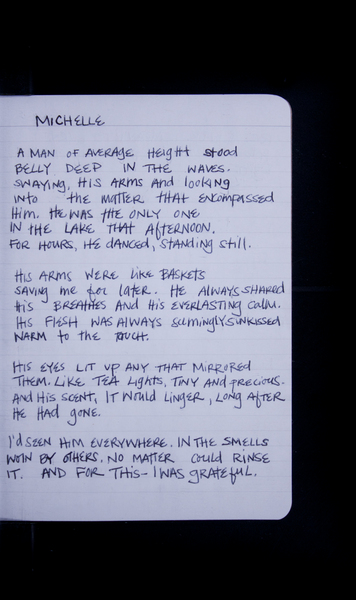 MICHELLE
A MAN OF AVERAGE HEIGHT STOOD
BELLY DEEP IN THE WAVES.
SWAYING, HIS ARMS AND looking
INTO THE MATTER THAT ENCOMPASSED
HIM. HE WAS THE ONLY ONE
IN THE LAKE THAT AFTERNOON.
FOR HOURS, HE DANCED, STANDING STILL.
HIS ARMS WERE LIKE BASKETS
SAVING me for LATER. HE ALWAYS SHARED
HIS BREATHES AND HIS EVERLASTING CALM.
HIS FLESH WAS ALWAYS SEEMINGLY SUNKISSED
WARM to the TOUCH.
HIS EYES LIT UP ANY THAT MIRRORED
THEM. LIKE TEA LIGHTS, TINY AND precious.
AND HIS SCENT, IT WOULD LINGER, LONG AFTER
HE HAD GONE.
I'D SEEN HIM EVERYWHERE. IN THE SMELLS
WORN BY OTHERS. NO MATTER COULD RINSE
IT. AND FOR THIS- I WAS GRATEFUL.